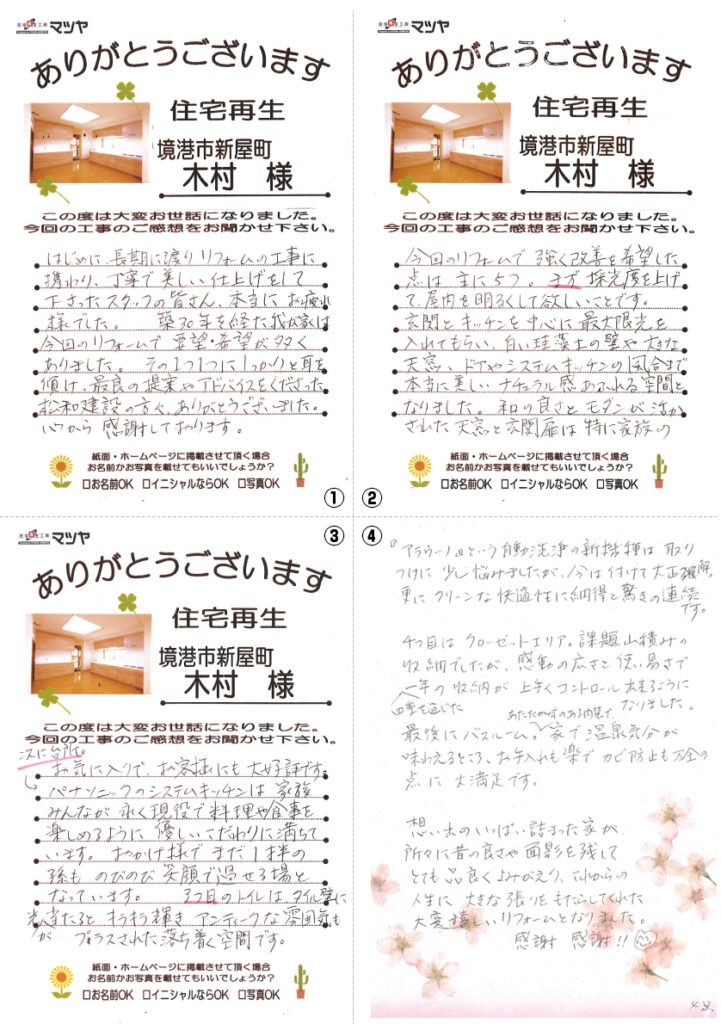 マツヤ
ありがとうございます
住宅再生
境港市新屋町
木村 様
この度は大変お世話になりました。
今回の工事のご感想をお聞かせ下さい。
はじめに、長期に渡りリフォームの工事に
携わり、丁寧で美しい仕上げをして
下さったスタッフの皆さん、本当にお疲れ
様でした。 築30年を経た我が家は
今回のリフォームで要望・希望が多く
ありました。その1つ1つにしっかりと耳を
傾け、最良の提案やアドバイスをくださった
松和建設の方々、ありがとうございました。
心から感謝しております。
紙面・ホームページに掲載させて頂く場合
お名前かお写真を載せてもいいでしょうか?
□お名前OK □イニシャルならOK □写真OK
①
マツヤ
ありがとうございます
住宅再生
境港市新屋町
木村 様
この度は大変お世話になりました。
今回の工事のご感想をお聞かせ下さい。
今回のリフォームで強く改善を希望した
点は主に5つ。まず採光度を上げ
て、屋内を明るくして欲しいことです。
玄関とキッチンを中心に最大限光を
入れてもらい、白い珪藻土の壁や大きな
天窓、ドアやシステムキッチンの風合まで
本当に美しいナチュラル感あふれる空間と
なりました。和の良さとモダンが活か
された天窓と玄関扉は特に家族の
紙面・ホームページに掲載させて頂く場合
お名前かお写真を載せてもいいでしょうか?
□お名前OK □イニシャルならOK □写真OK
②
③
マツヤ
ありがとうございます
住宅再生
境港市新屋町
木村 様
この度は大変お世話になりました。
今回の工事のご感想をお聞かせ下さい。
次に台所。
お気に入りで、お客様にも大好評です。
パナソニックのシステムキッチンは家族
みんなが永く現役で料理や食事を
楽しめるように優しいこだわりに満ちて
います。おかげ様でまだ1才の
孫ものびのび笑顔で過せる場と
なっています。 3つ目のトイレはタイル壁に
光が当たるとキラキラ輝きアンティークな雰囲気も
がプラスされた落ち着く空間です。
紙面・ホームページに掲載させて頂く場合
お名前かお写真を載せてもいいでしょうか?
□お名前OK □イニシャルならOK □写真OK
④
『アラウーノ』という自動洗浄の新機種は取り
つけに少し悩みましたが、今は付けて大正解。
更にクリーンな快適性に納得と驚きの連続
です。
4つ目はクローゼットエリア。課題山積みの
収納でしたが、感動の広さと使い易さで
一年の収納が上手くコントロール出来るように
四季を通じた なりました。
あたたかみのある内装で、
最後にバスルーム。家で温泉気分が
味わえるところ、お手入れも楽でカビ防止も万全の
点に大満足です。
想い出のいっぱい詰まった家が
所々に昔の良さや面影を残して
とても品良くよみがえり、これからの
人生に大きな張りをもたらしてくれた
大変嬉しいリフォームとなりました。
感謝 感謝!!